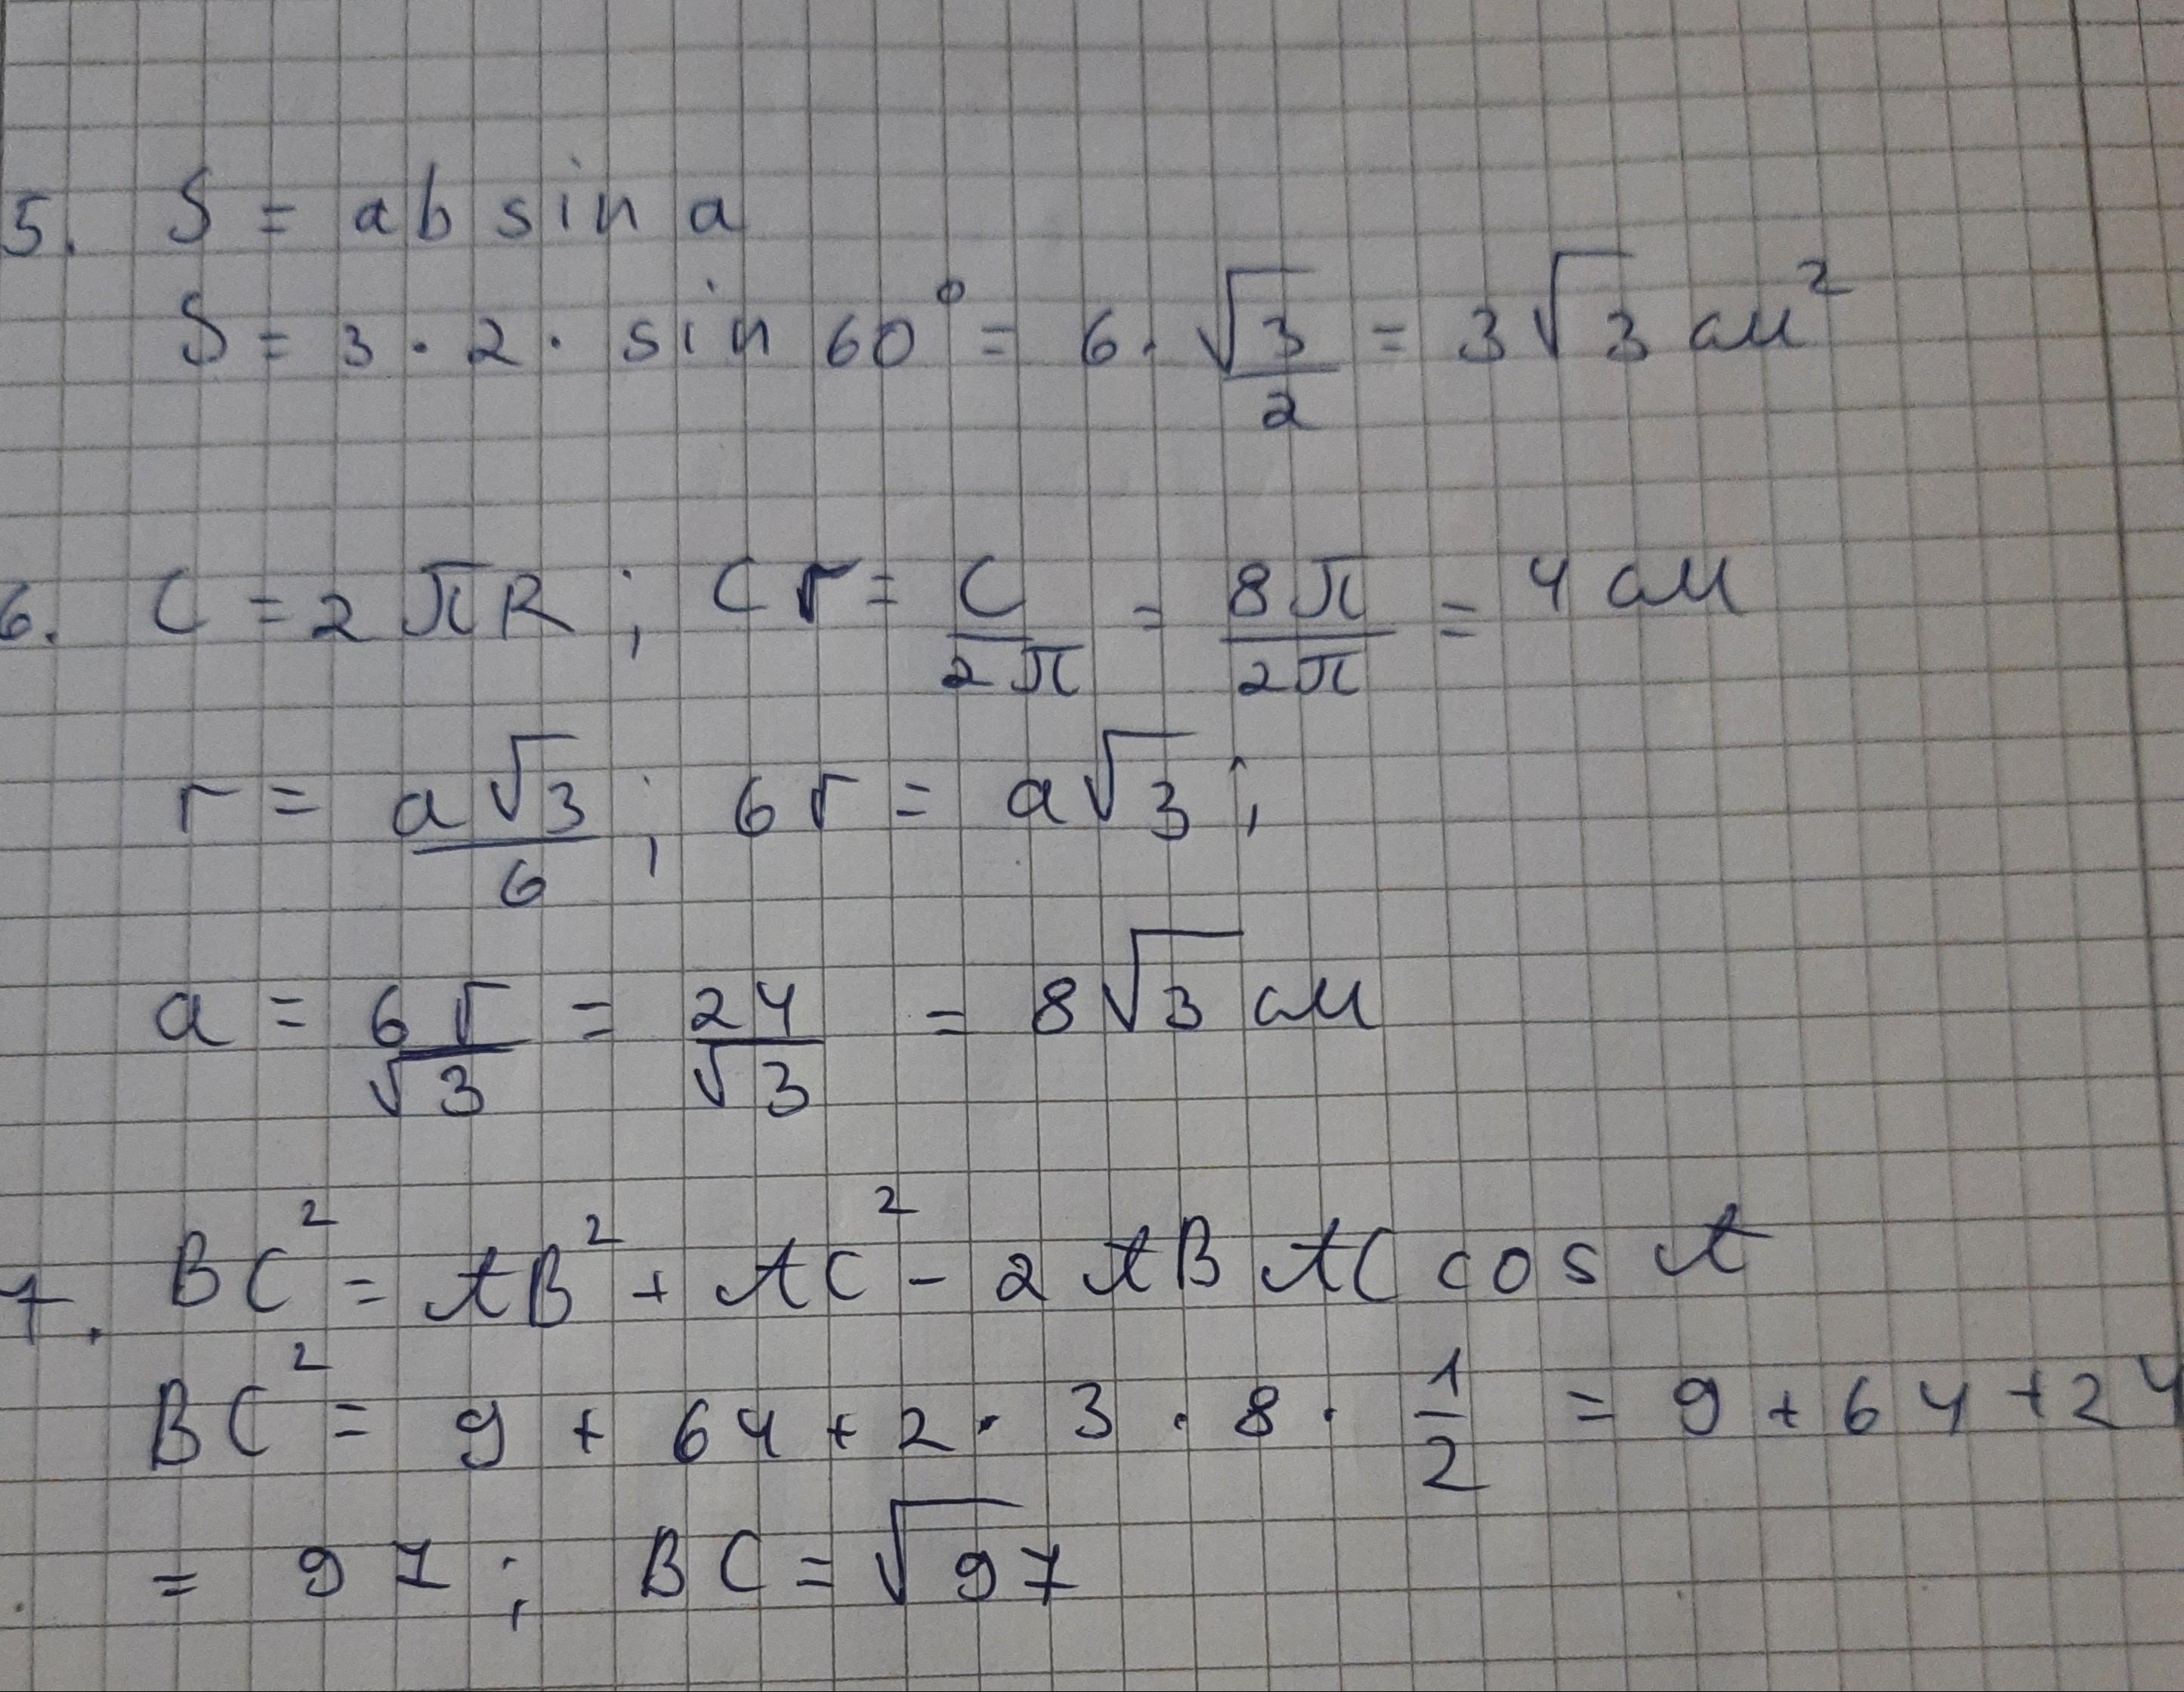 5. S = ab sin a
S = 3 · 2 · sin 60° = 6 · √3/2 = 3√3 см²
6. C = 2πR ; C r = C/2π = 8π/2π = 4 см
r = a√3/6 ; 6r = a√3 ;
a = 6r/√3 = 24/√3 = 8√3 см
7. BC² = AB² + AC² - 2 AB AC cos A
BC² = 9 + 64 + 2 · 3 · 8 · 1/2 = 9 + 64 + 24
= 97 ; BC = √97